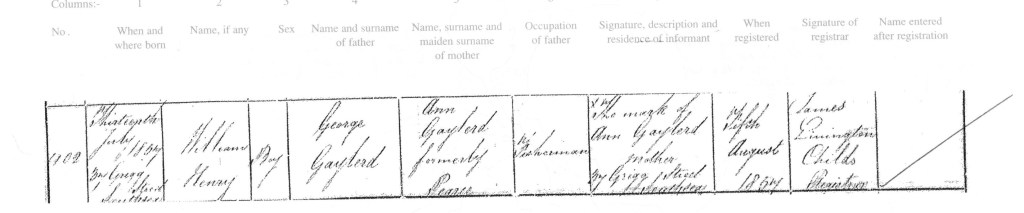 Columns:- 1 2 3 4
No. When and where born Name, if any Sex Name and surname of father Name, surname and maiden surname of mother Occupation of father Signature, description and residence of informant When registered Signature of registrar Name entered after registration
402
Thirteenth
July 1857
Grigg
Street
Southsea
William
Henry
Boy
George
Gaylerd
Ann
Gaylerd
formerly
Fisherman
The mark of
Ann Gaylerd
mother
Grigg Street
Southsea
Fifth
August
1857
James
Pinington
Childs
Registrar